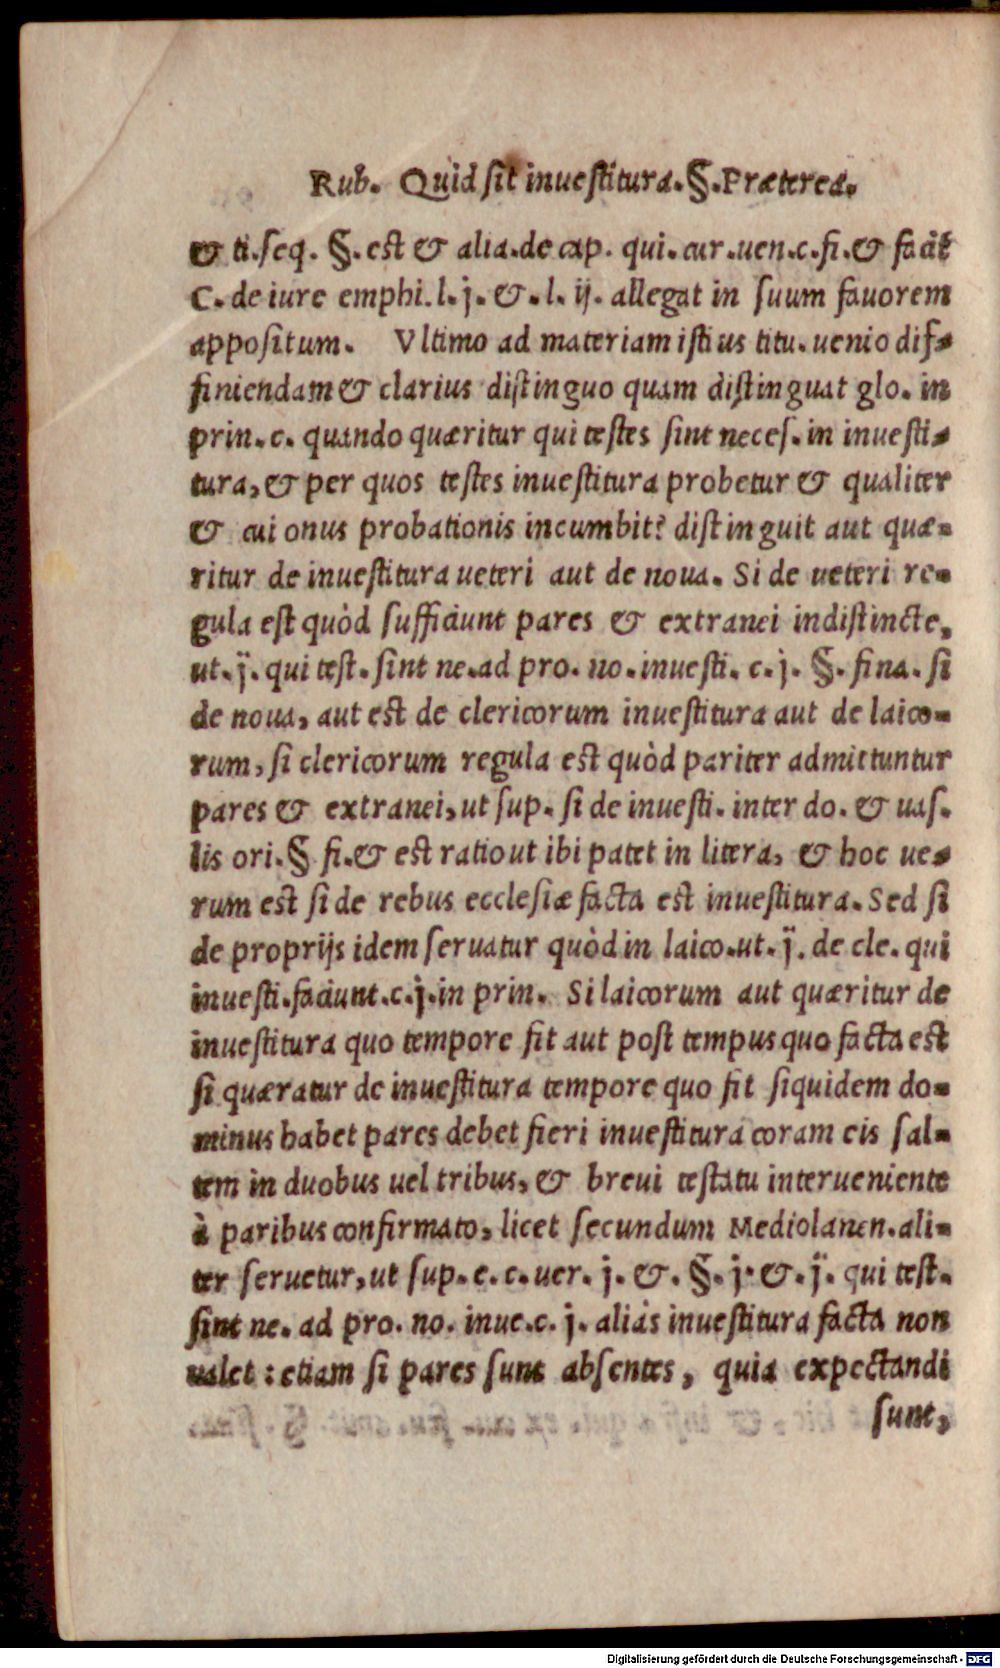 Rub. Quid sit inuestitura. §. Præterea.
& ti. seq. §. est & alia. de cap. qui. cur. uen. c. fi. & facit
C. de iure emphi. l. j. &. l. ij. allegat in suum fauorem
appositum. Vltimo ad materiam istius titu. uenio dif-
finiendam & clarius distinguo quam distinguat glo. in
prin. c. quando quæritur qui testes sint neces. in inuesti-
tura, & per quos testes inuestitura probetur & qualiter
& cui onus probationis incumbit? distinguit aut quæ-
ritur de inuestitura ueteri aut de noua. Si de ueteri re-
gula est quòd sufficiunt pares & extranei indistincte,
ut. j̈. qui test. sint ne. ad pro. no. inuesti. c. j. §. fina. si
de noua, aut est de clericorum inuestitura aut de laico-
rum, si clericorum regula est quòd pariter admittuntur
pares & extranei, ut sup. si de inuesti. inter do. & uas.
lis ori. § fi. & est ratio ut ibi patet in litera, & hoc ue-
rum est si de rebus ecclesiæ facta est inuestitura. Sed si
de proprijs idem seruatur quòd in laico. ut. j̈. de cle. qui
inuesti. faciunt. c. j. in prin. Si laicorum aut quæritur de
inuestitura quo tempore fit aut post tempus quo facta est
si quæratur de inuestitura tempore quo fit siquidem do-
minus habet pares debet fieri inuestitura coram eis sal-
tem in duobus uel tribus, & breui testatu interueniente
à paribus confirmato, licet secundum Mediolanen. ali-
ter seruetur, ut sup. e. c. uer. j. &. §. j. &. j̈. qui test.
sint ne. ad pro. no. inue. c. j. aliàs inuestitura facta non
ualet: etiam si pares sunt absentes, quia expectandi
sunt,
Digitalisierung gefördert durch die Deutsche Forschungsgemeinschaft - DFG